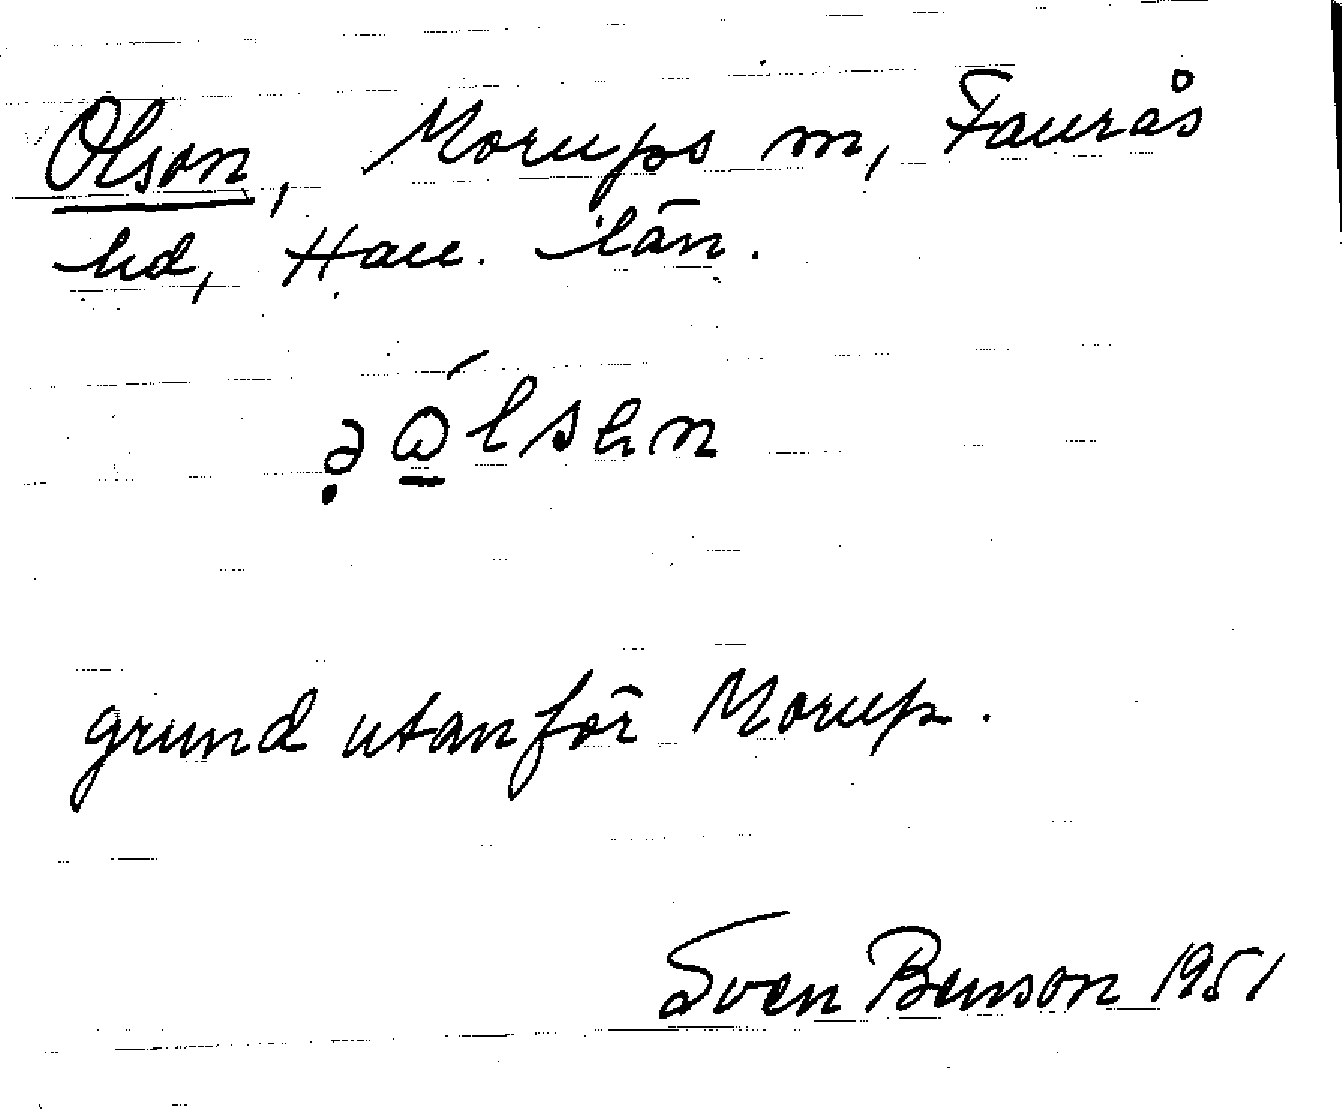 Olson, Morups sn, Faurås
hd, Hall. län.
grund utanför Morup.
Sven Benson 1951